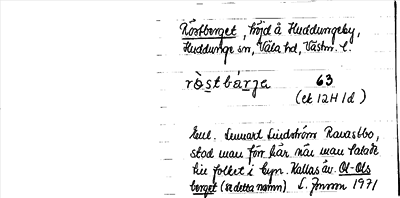 Röstberget, höjd å Huddungeby,
Huddunge sn, Våla hd, Västm. l.
ròstbárja 63
(ek 12H 1d)
Enl. Lennart Lindström Ravastbo,
stod man förr här när man talade
till folket i byn. Kallas äv. Ol-Ols
berget (se detta namn) L. Jonson 1971